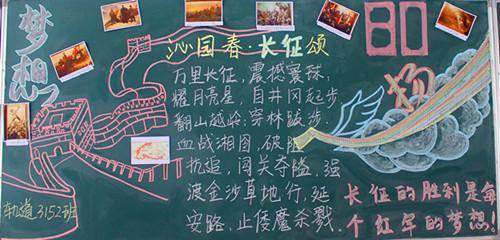 梦想
沁园春·长征颂
80
万里长征,震撼寰球,
耀月亮星,自井冈起步
翻山越岭;穿林跋步.
血战湘图,破
抗追,闯关夺隘,强
渡金沙草地行,延
安路,止倭魔杀戮.
轨道3152班
长征的胜利是每
个红军的梦想。